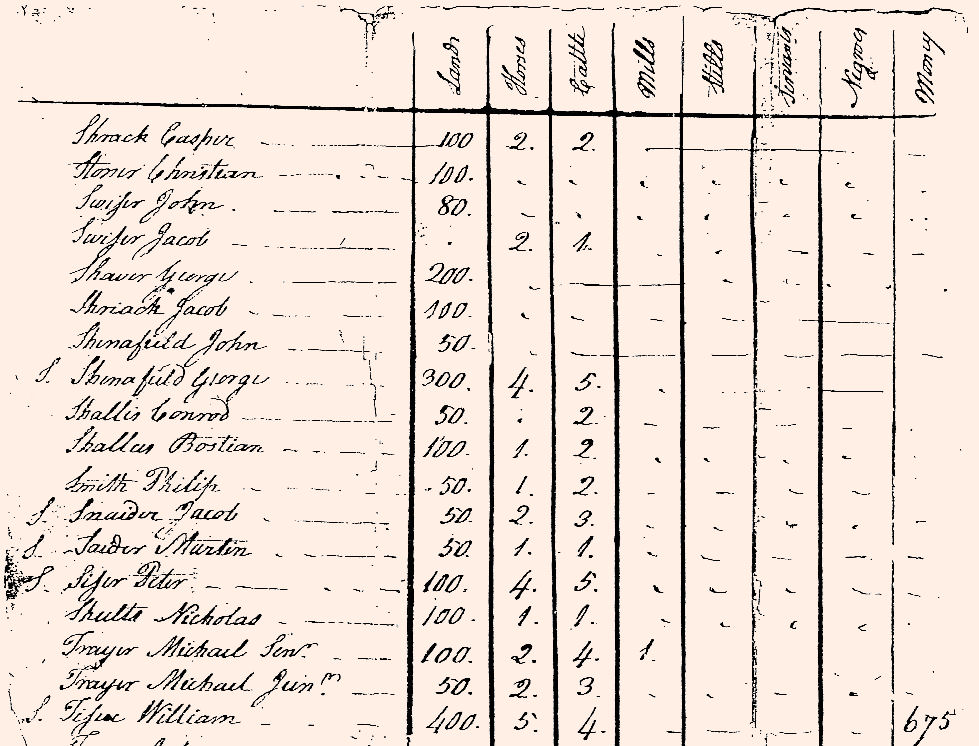 Land Horses Cattle Mills Stills Servants Negroes Money
Shrack Casper 100 2. 2.
Stoner Christian 100.
Swiser John 80.
Swiser Jacob 2. 1.
Shaver George 200.
Shriack Jacob 100.
Shinafield John 50.
S. Shinafield George 300. 4. 5.
Shallis Conrod 50. 2.
Shallus Bostian 100. 1. 2.
Smith Philip 50. 1. 2.
S. Snaider Jacob 50. 2. 3.
S. Saider Martin 50. 1. 1.
S. Siser Peter 100. 4. 5.
Shults Nicholas 100. 1. 1.
Trayer Michael Senr. 100. 2. 4. 1.
Trayer Michael Junr. 50. 2. 3.
S. William 400. 5. 4. 675